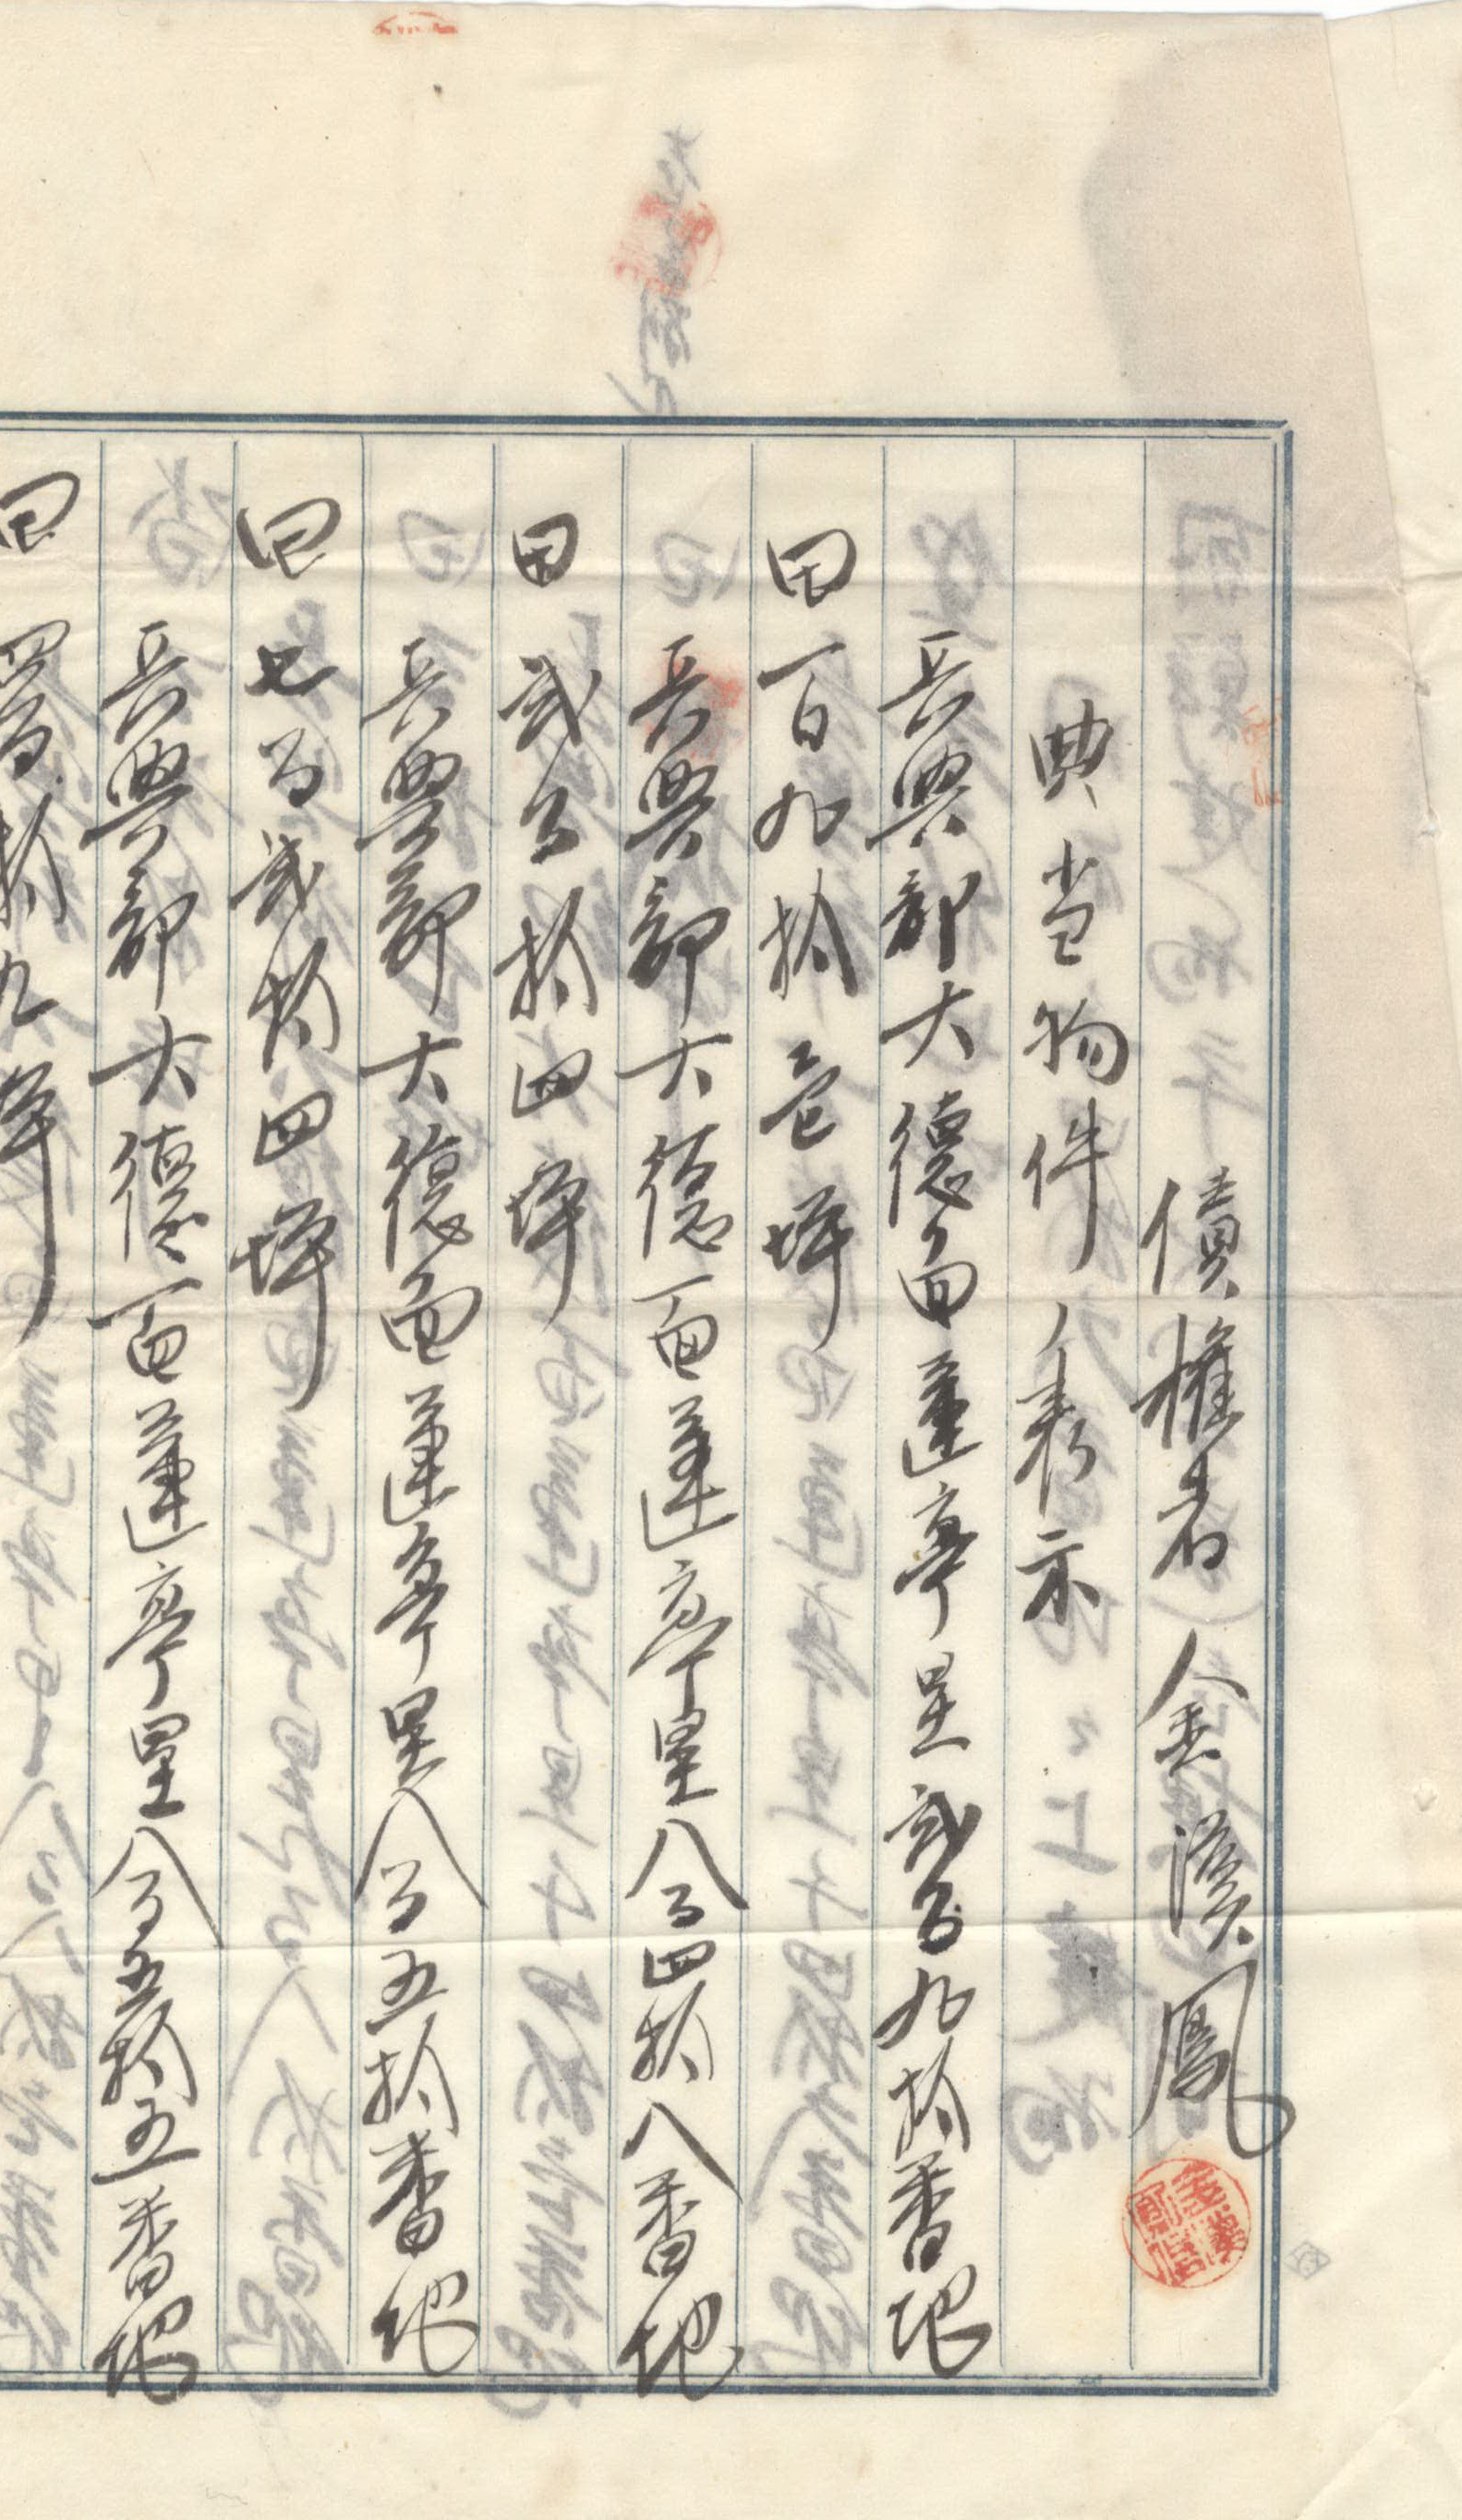 債權者 金漢鳳
典当物件ノ表示
長興郡大德面蓮亭里貳百九拾番地
田百九拾壱坪
長興郡大德面蓮亭里八百四拾八番地
田貳百拾四坪
長興郡大德面蓮亭里八百五拾番地
田七百貳拾四坪
長興郡大德面蓮亭里八百五拾五番地
田四百拾九坪